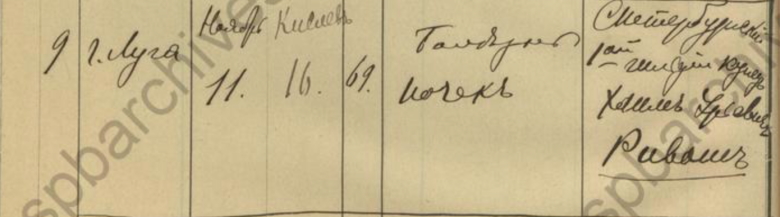 9 г. Луга
Ноябрь Кислевъ
11. 16. 69.
Болѣзнь
почекъ
С.Петербургскій
1ой гильдіи купецъ
Хаимъ Урьевичъ
Ривошъ
spbarchives